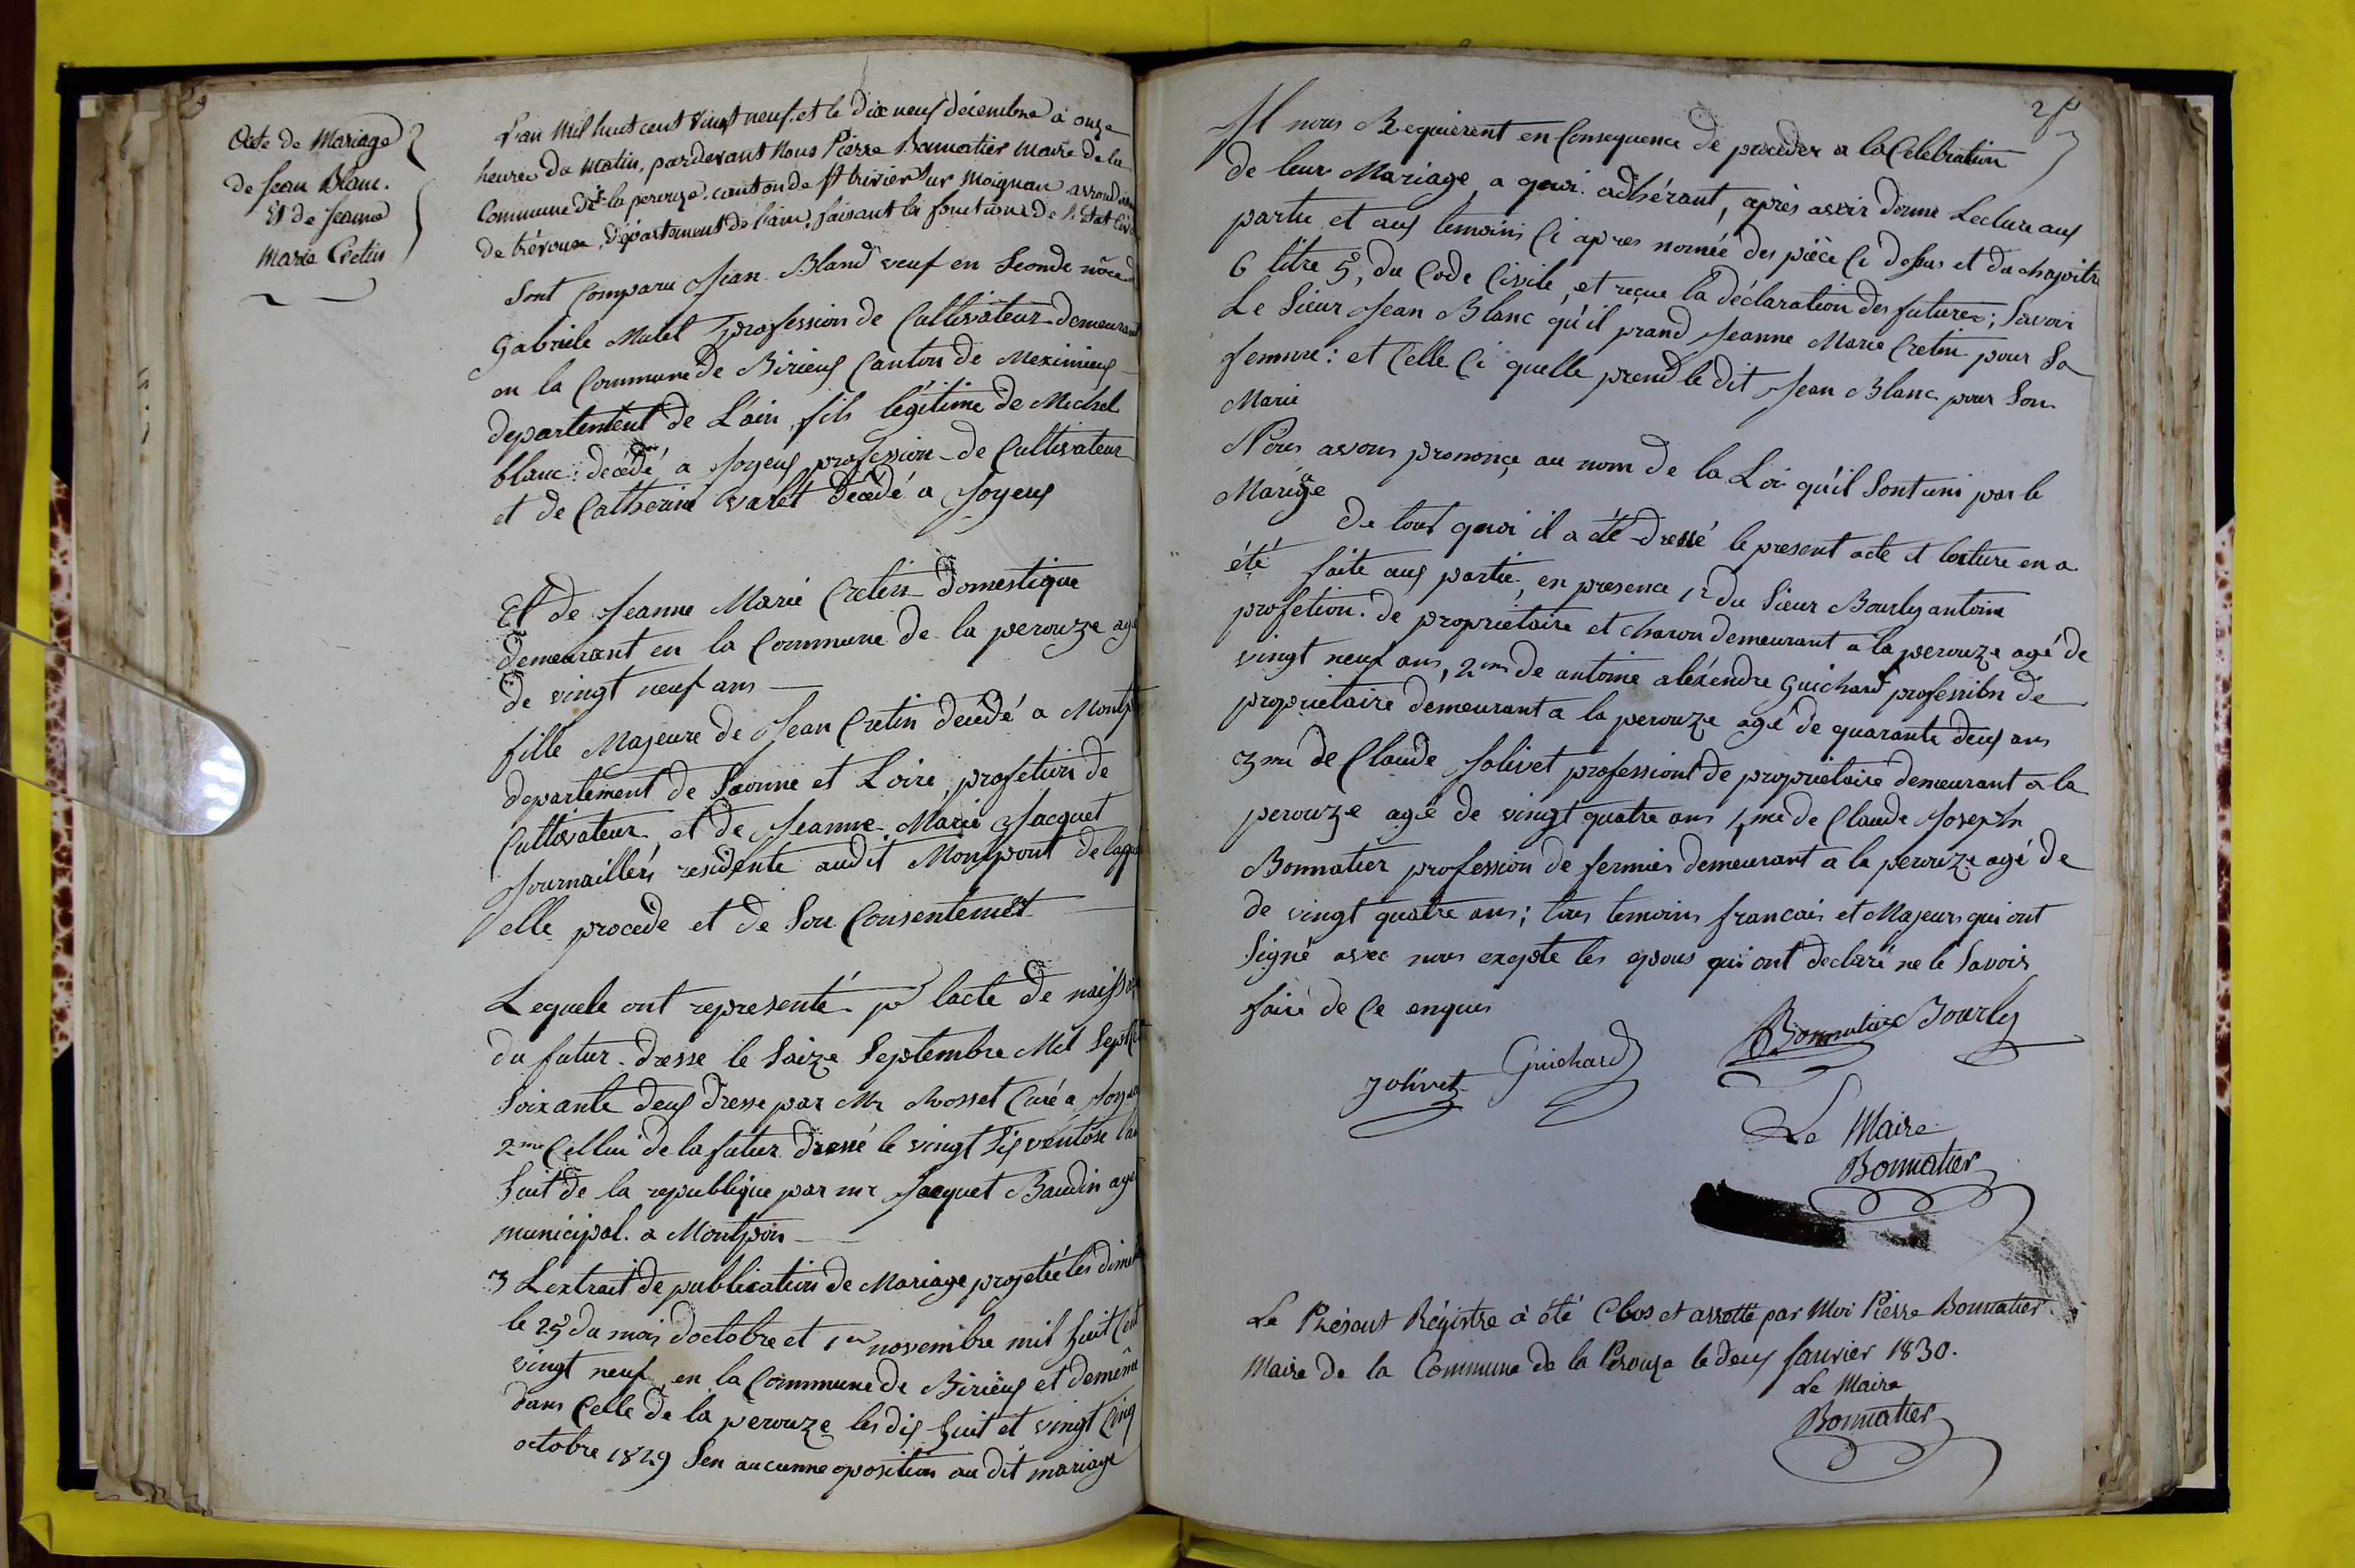 Acte de Mariage
de Jean Blanc.
Et de Jeanne
Marie Cretin
L'an Mil huit cent vingt neuf, et le dix neuf décembre à onze
heures du Matin, pardevant Nous Pierre Bonnatier Maire de la
Commune de la perouze, canton de St trivier sur Moignan arrond
de trévoux, département de l'ain, faisant les fonctions de l'état Civ
Sont Comparu Jean Bland veuf en Seconde nôce d
Gabriele Mulet profession de Cultivateur demeurant
en la Commune de Birieux Canton de Meximieux
departement de L'ain, fils légitime de Michel
blanc: décédé a Joyeux profession de Cultivateur
et de Catherine valet décédé a Joyeux
Et de Jeanne Marie Cretin domestique
demeurant en la Commune de la perouze agé
de vingt neuf ans
fille Majeure de Jean Cretin decédé a Montp
departement de Saonne et Loire, profetion de
Cultivateur, et de Jeanne Marie Jacquet
Journaillére residente audit Montpont de laqu
elle procede et de Son Consentemet
Lequele ont representé pr lacte de naissa
du futur dresse le Saize Septembre Mil Sept Ce
Soixante deux dresse par Mr Rosset Curé a Joyeu
2me Cellui de la futur dressé le vingt six ventose l'an
huit de la republique par mr Jacquet Baudin age
municipal. a Montpon
3 Lextrait de publication de Mariage projetée les dimen
le 25 du mois doctobre et 1er novembre mil huit Cent
vingt neuf, en la Commmune de Birieux et de même
dans Celle de la perouze les dix huit et vingt Cinq
octobre 1829 Sen aucunne oposition au dit mariage
28
Il nous Requierent en Consequence de proceder a la Célébration
de leur Mariage, a quoi adhérant, après avoir donne Lecture aux
partie et aux temoins Ci apres nomée des pièce Ci dessus et du chapitre
6 titre 5, du Code Civile, et reçue la déclaration des futures; Savoir
Le Sieur Jean Blanc qu'il prand Jeanne Marie Cretin pour Sa
femme: et Celle Ci quelle prend le dit Jean Blanc pour Son
Marie
Nous avons prononçe au nom de la Loi qu'il Sont uni par le
Mariage
De tout quoi il a été dressé le present acte et lecture en a
été faite aux partie, en presence 1r du Sieur Bourly antoine
profetion de proprietaire et charon demeurant a la perouze agé de
vingt neuf ans, 2me de antoine aléxendre Guichard profession de
proprietaire demeurant a la perouze agé de quarante deux ans
3me de Claude Jolivet professiont de proprietaire demeurant a la
perouze agé de vingt quatre ans 4me de Claude Joseph
Bonnatier profession de fermier demeurant a la perouze agé de
de vingt quatre ans; tous temoins francais et Majeurs qui ont
Signé avec nous excepte les epous qui ont declaré ne le Savoir
faire de Ce enquis
Bonnatier Bourly
Jolivet Guichard
Le Maire
Bonnatier
Le Présent Régistre à été Clos et arretté par Moi Pierre Bonnatier
Maire de la Commune de la Perouze le deux Janvier 1830.
Le Maire
Bonnatier